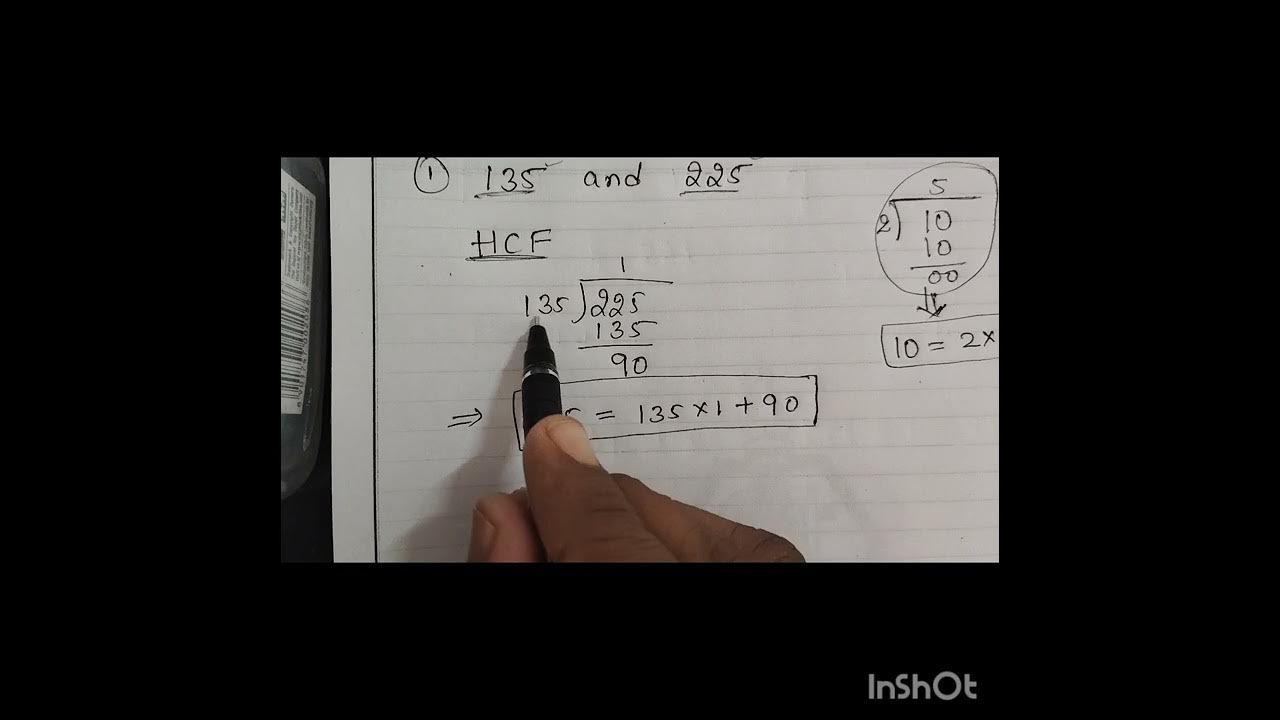 ① 135 and 225
HCF
1
135 ) 225
135
90
⇒ = 135 × 1 + 90
5
2 ) 10
10
00
⇓
10 = 2 ×
InShOt